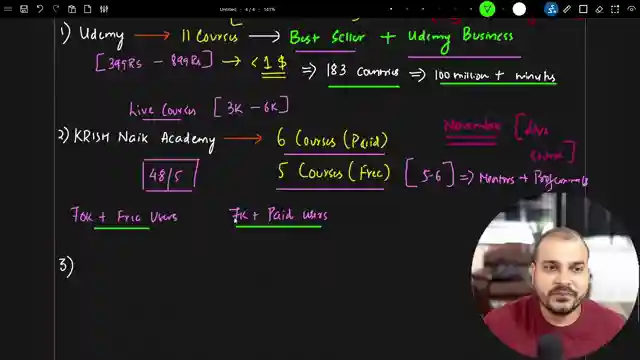 Untitled - 4 / 4 - 141%
1) Udemy → 11 Courses → Best Seller + Udemy Business
[399Rs - 899Rs] → < 1 $ ⇒ 183 countries ⇒ 100 million + minutes
Live Courses [3K - 6K]
2) KRISH Naik Academy → 6 Courses (Paid) November [live course]
48/5 5 Courses (Free) [5-6] ⇒ Mentors +
70K + Free Users 7K + Paid users
3)